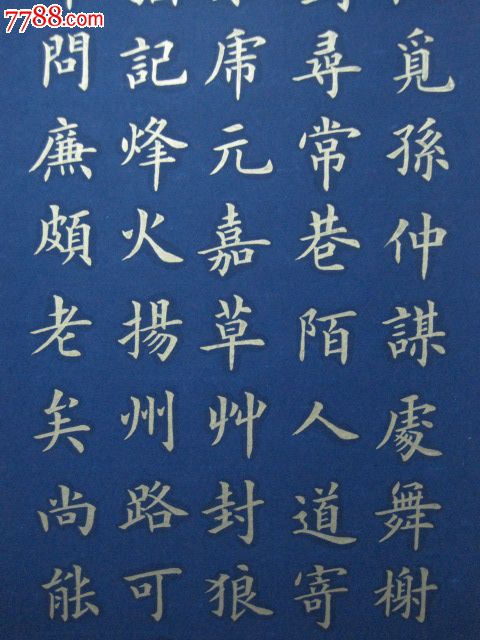 7788.com
覓孫仲謀處舞榭
尋常巷陌人道寄
虎元嘉草艸封狼
記烽火揚州路可
問廉頗老矣尚能